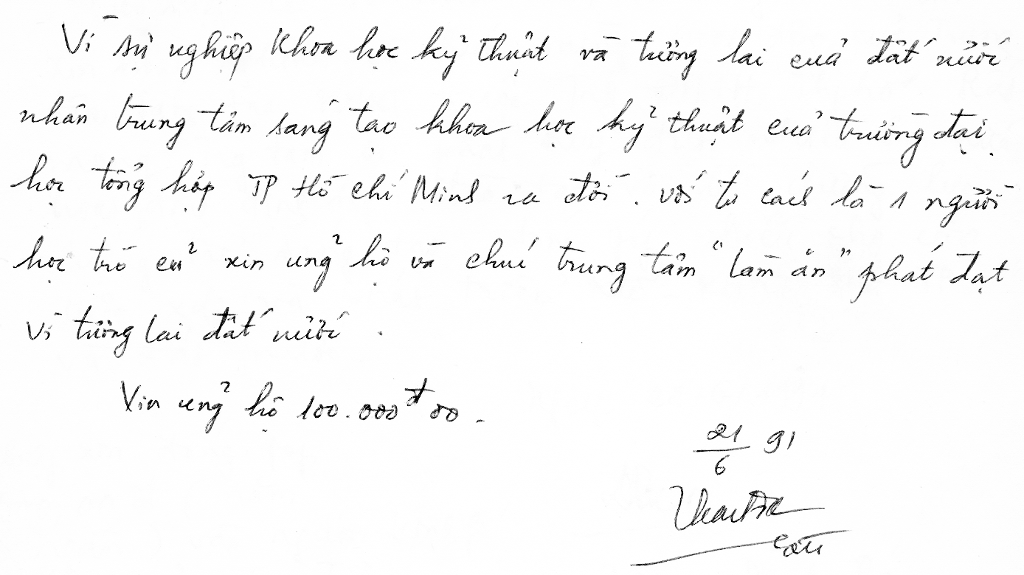 Vì sự nghiệp khoa học kỹ thuật và tương lai của đất nước
nhân trung tâm sáng tạo khoa học kỹ thuật của trường đại
học tổng hợp TP Hồ Chí Minh ra đời. với tư cách là 1 người
học trò cũ xin ủng hộ và chúc trung tâm "làm ăn" phát đạt
vì tương lai đất nước.
Xin ủng hộ 100.000đ00.
21/6 91